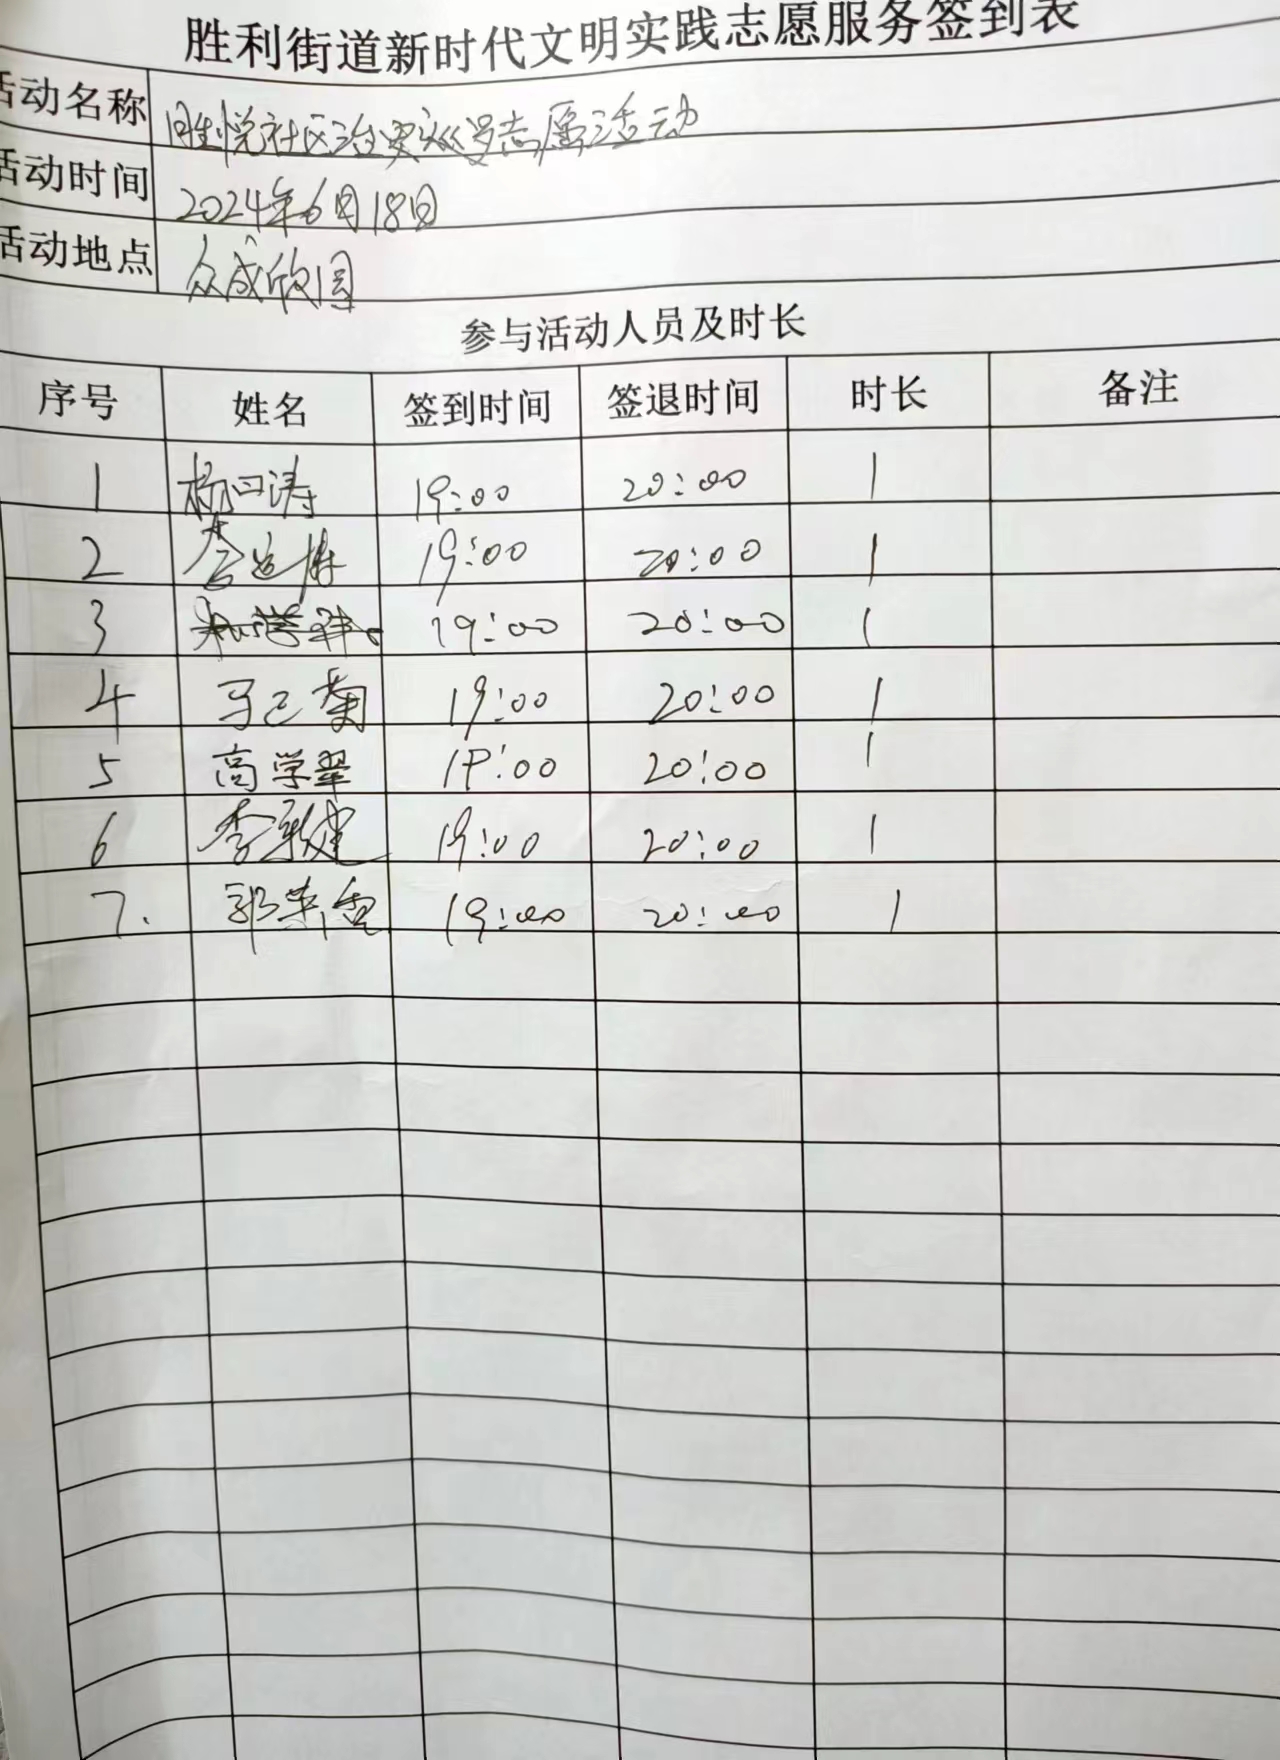 胜利街道新时代文明实践志愿服务签到表
活动名称 胜悦社区治安巡逻志愿活动
活动时间 2024年6月18日
活动地点 众成欣园
参与活动人员及时长
序号 姓名 签到时间 签退时间 时长 备注
1 杨口涛 19:00 20:00 1
2 19:00 20:00 1
3 19:00 20:00 1
4 马己菊 19:00 20:00 1
5 高学翠 19:00 20:00 1
6 李新建 19:00 20:00 1
7. 郭荣香 19:00 20:00 1